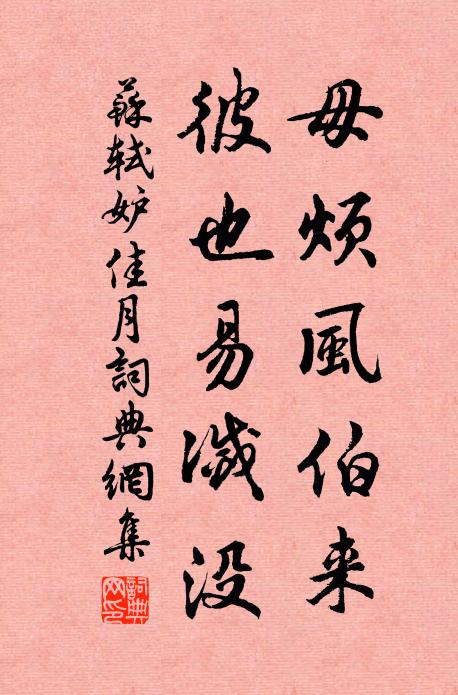 毋煩風伯来
彼也易滅没
蘇軾妒佳月詞典網集
詞典網印